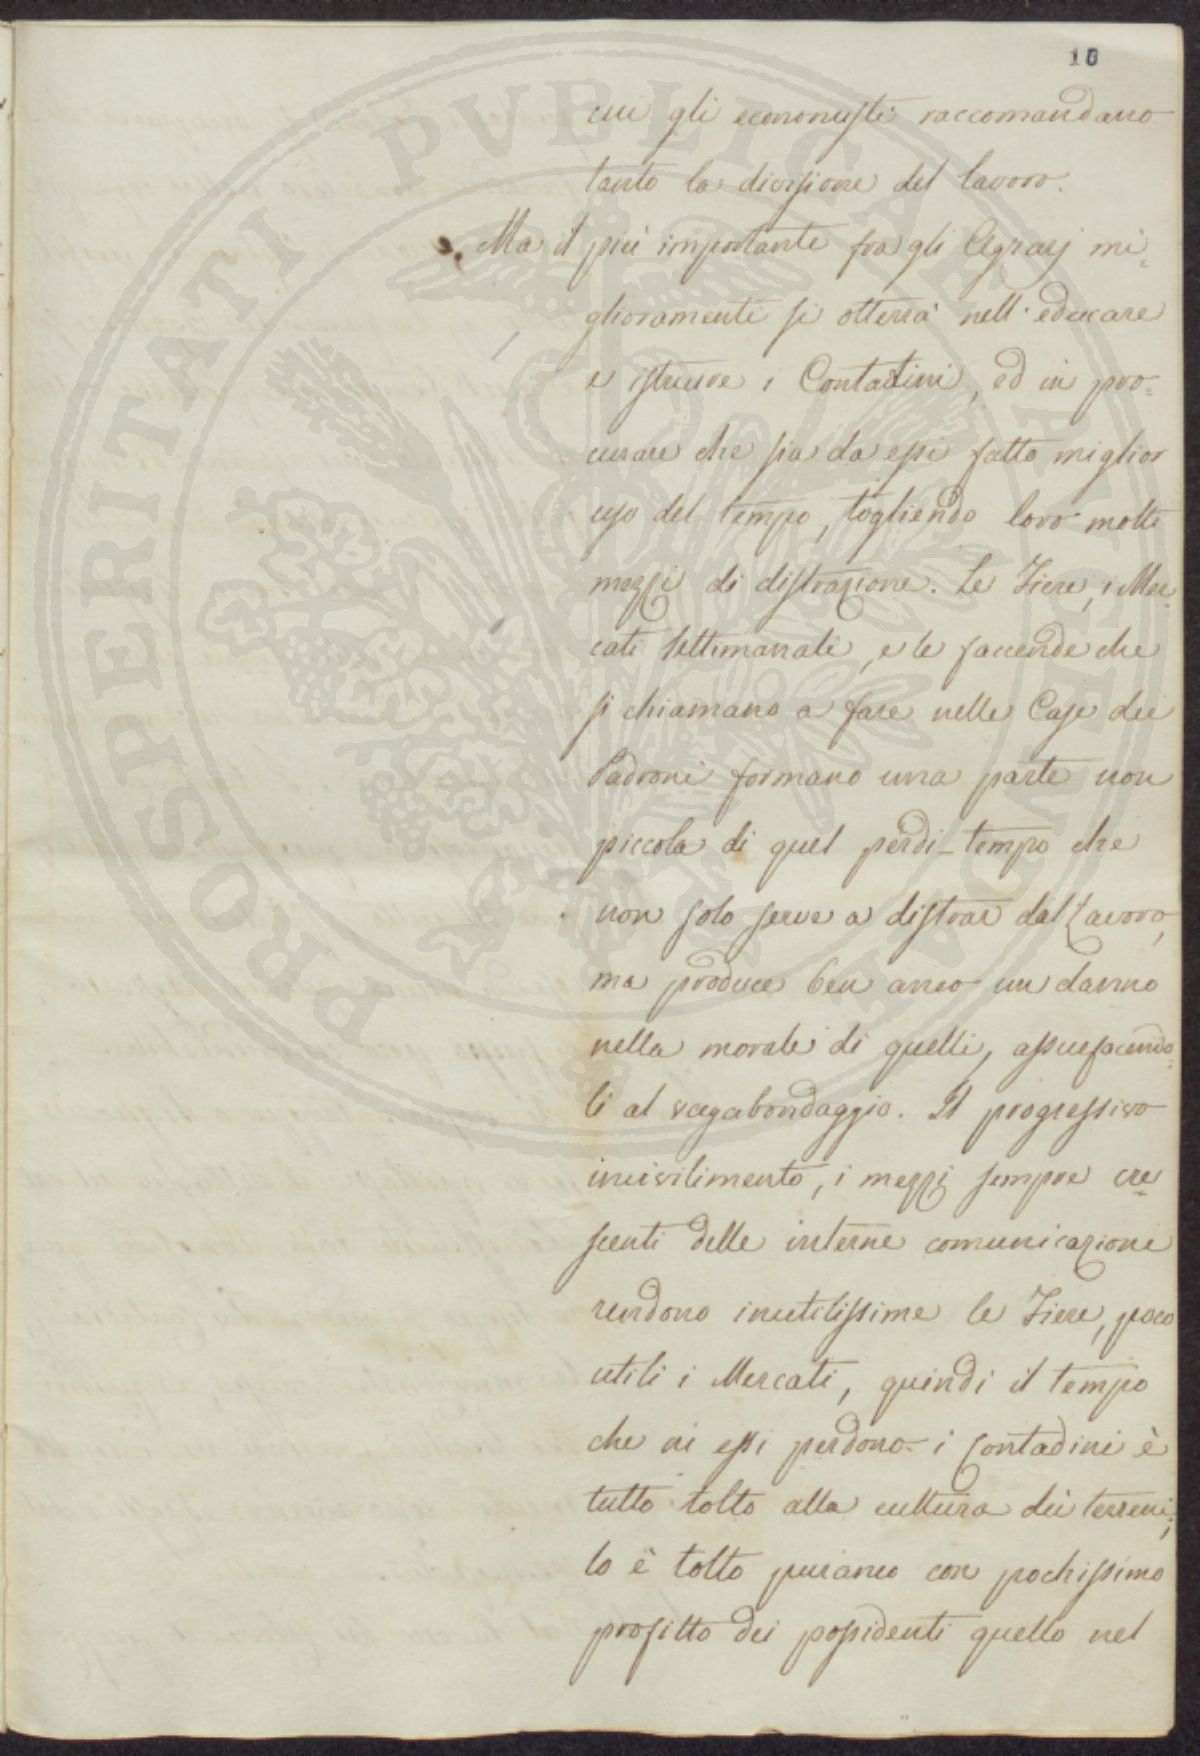 16
cui gli economisti raccomandano
tanto la divisione del lavoro.
Ma il più importante fra gli Agrarj mi=
glioramenti si otterrà nell'educare
e istruire i Contadini, ed in pro=
curare che sia da essi fatto miglior
uso del tempo, togliendo loro molti
mezzi di distrazione. Le Fiere, i Mer=
cati settimanali, e le faccende che
si chiamano a fare nelle Case dei
Padroni formano una parte non
piccola di quel perdi-tempo che
non solo serve a distrar dal Lavoro,
ma produce ben anco un danno
nella morale di quelli, assuefacendo=
li al vagabondaggio. Il progressivo
incivilimento, i mezzi sempre cre=
scenti delle interne comunicazione
rendono inutilissime le Fiere, poco
utili i Mercati, quindi il tempo
che in essi perdono i Contadini è
tutto tolto alla cultura dei terreni;
lo è tolto puranco con pochissimo
profitto dei possidenti quello nel
PROSPERITATI PVBLICAE AVGENDAE